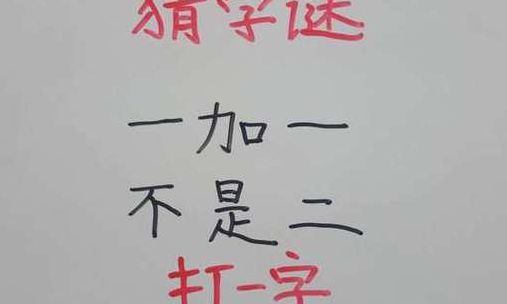 猜字谜
一加一
不是二
打一字